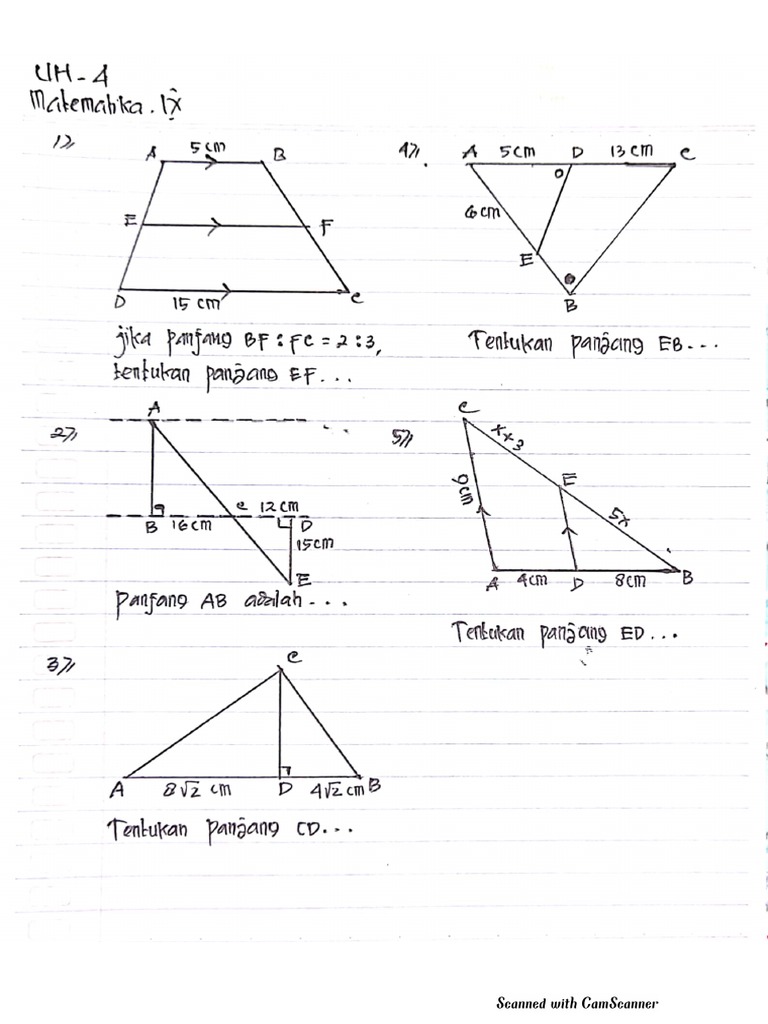 UH-4
Matematika. IX
1).
A 5 cm B
E F
D 15 cm C
jika panjang BF : FC = 2 : 3,
tentukan panjang EF...
2).
A
B 16 cm C 12 cm D
15 cm
E
Panjang AB adalah...
3).
C
A 8√2 cm D 4√2 cm B
Tentukan panjang CD...
4).
A 5 cm D 13 cm C
6 cm
E
B
Tentukan panjang EB...
5).
C
x+3
9 cm E
5x
A 4 cm D 8 cm B
Tentukan panjang ED...
Scanned with CamScanner